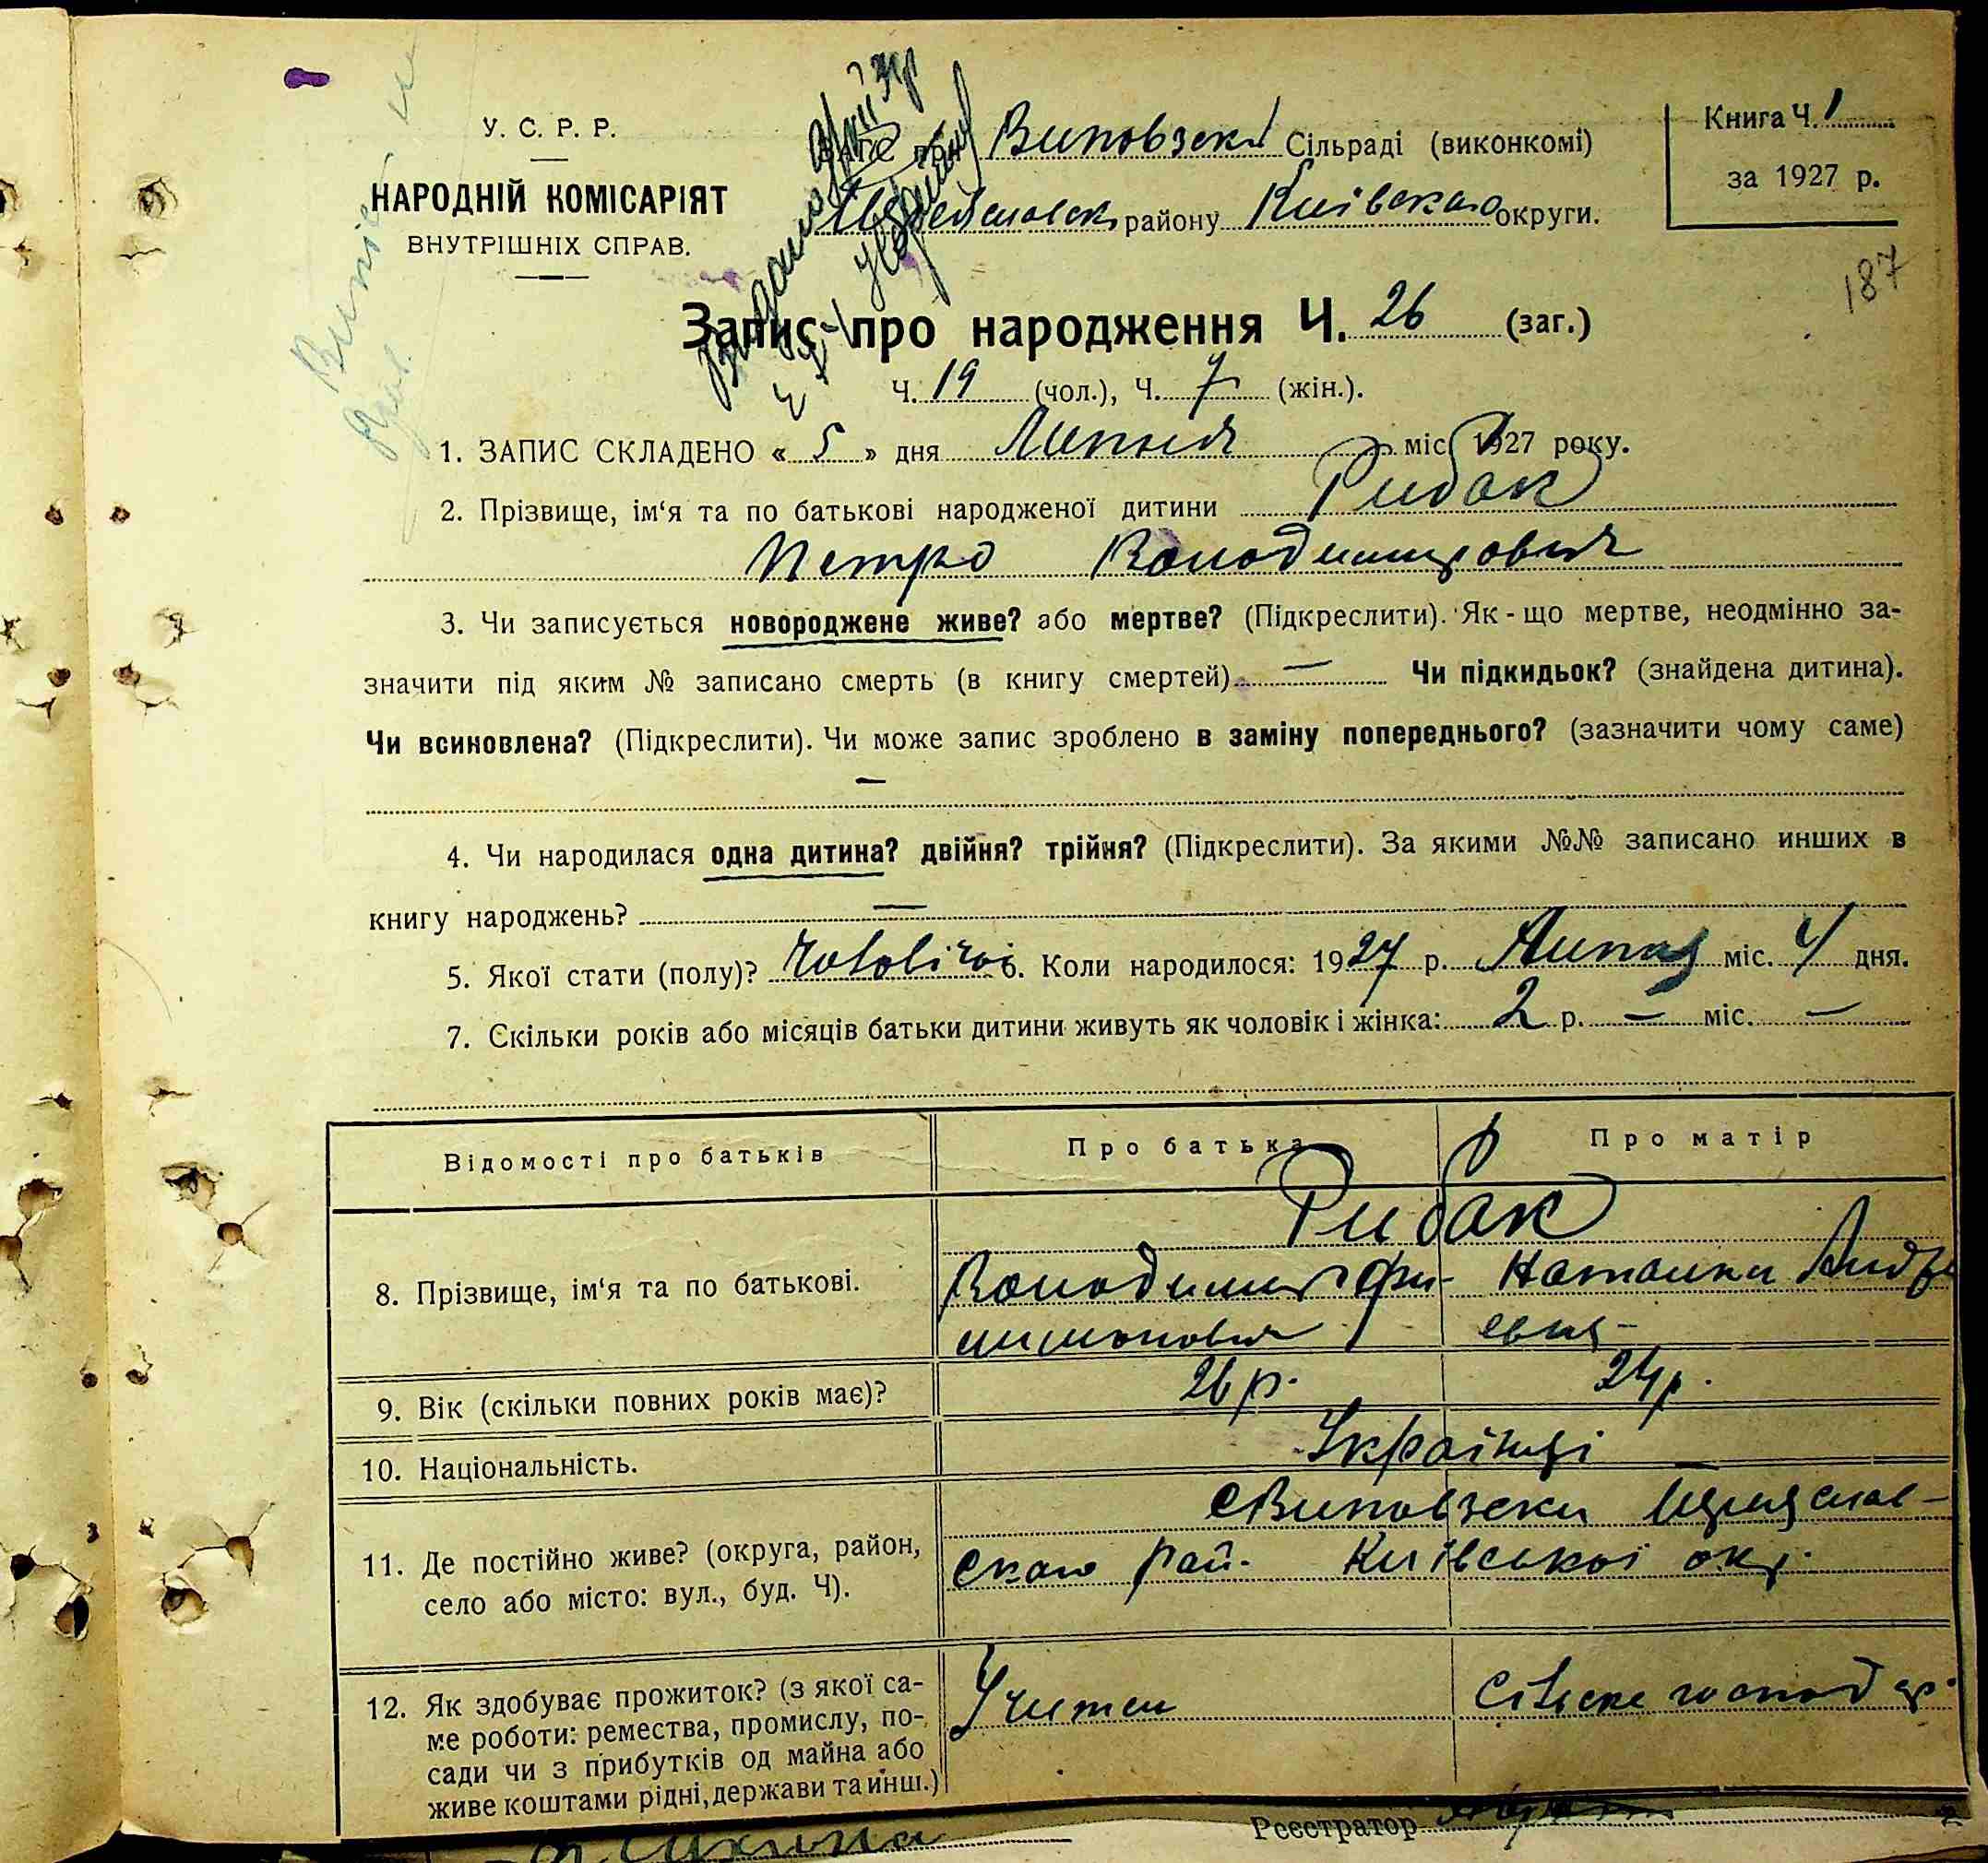 У. С. Р. Р.
НАРОДНІЙ КОМІСАРІЯТ
ВНУТРІШНІХ СПРАВ.
Виповзски Сільраді (виконкомі)
району Київскаго округи.
Книга Ч. 1
за 1927 р.
187
Запис про народження Ч. 26 (заг.)
Ч. 19 (чол.), Ч. 7 (жін.).
1. ЗАПИС СКЛАДЕНО « 5 » дня Липня міс 1927 року.
2. Прізвище, ім‘я та по батькові народженої дитини Рибак
Петро Володимирович
3. Чи записується новороджене живе? або мертве? (Підкреслити). Як - що мертве, неодмінно за-
значити під яким № записано смерть (в книгу смертей) — Чи підкидьок? (знайдена дитина).
Чи всиновлена? (Підкреслити). Чи може запис зроблено в заміну попереднього? (зазначити чому саме)
—
4. Чи народилася одна дитина? двійня? трійня? (Підкреслити). За якими №№ записано инших в
книгу народжень? —
5. Якої стати (полу)? Чоловічої 6. Коли народилося: 1927 р. Липня міс. 4 дня.
7. Скільки років або місяців батьки дитини живуть як чоловік і жінка: 2 р. — міс. —
Відомості про батьків Про батька Про матір
Рибак
8. Прізвище, ім‘я та по батькові. Володимир Фи- Наталки Андр
евна
9. Вік (скільки повних років має)? 26 р. 24 р.
10. Національність. Українці
с Виповзски
11. Де постійно живе? (округа, район, скаго рай. Київської окр.
село або місто: вул., буд. Ч).
12. Як здобуває прожиток? (з якої са- Учитель Сільске господар.
ме роботи: ремества, промислу, по-
сади чи з прибутків од майна або
живе коштами рідні, держави та инш.)
Реєстратор